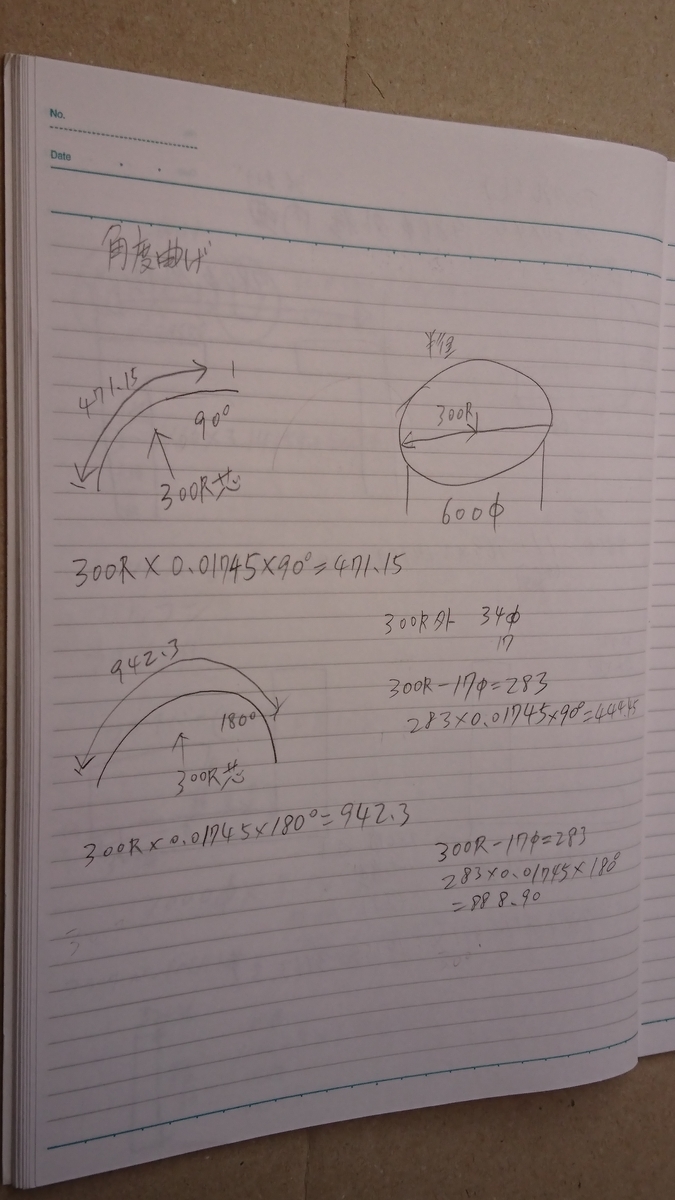 No.
Date
角度曲げ
471.15
90°
300R芯
半径
300R
600φ
300R×0.01745×90°=471.15
300R外 34φ
17
300R-17φ=283
283×0.01745×90°=444.45
942.3
180°
300R芯
300R×0.01745×180°=942.3
300R-17φ=283
283×0.01745×180°
=888.90